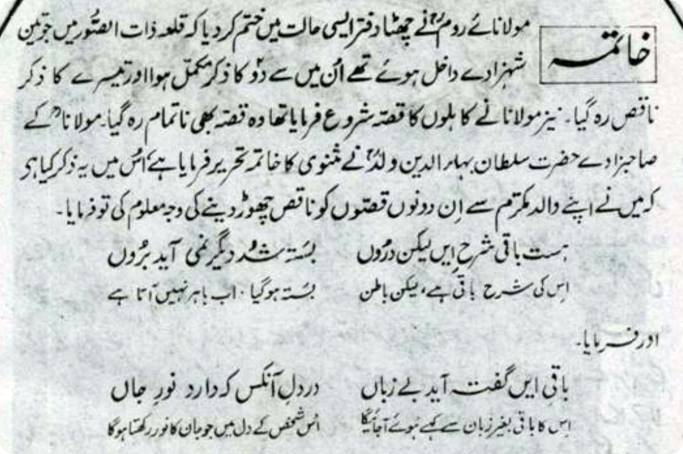 خاتمہ
مولانائے روم نے چھٹا دفتر ایسی حالت میں ختم کر دیا کہ قلعہ ذات الصّور میں جو تین
شہزادے داخل ہوئے تھے اُن میں سے دو کا ذکر مکمل ہوا اور تیسرے کا ذکر
ناقص رہ گیا۔ نیز مولانا نے کاہلوں کا قصّہ شروع فرمایا تھا وہ قصّہ بھی ناتمام رہ گیا۔ مولانا کے
صاحبزادے حضرت سلطان بہاء الدین ولد نے مثنوی کا خاتمہ تحریر فرمایا ہے اُس میں یہ ذکر کیا ہے
کہ میں نے اپنے والد مکرّم سے اِن دونوں قصّوں کو ناقص چھوڑ دینے کی وجہ معلوم کی تو فرمایا۔
ہست باقی شرحِ ایں لیکن درُوں بستہ شُد دیگر نمی آید برُوں
اس کی شرح باقی ہے، لیکن باطن بستہ ہو گیا، اب باہر نہیں آتا ہے
اور فرمایا۔
باقی ایں گفتہ آید بے زباں در دلِ آنکس کہ دارد نورِ جاں
اِس کا باقی بغیر زبان سے کہے ہوئے آجائیگا اُس شخص کے دل میں جو جان کا نور رکھتا ہوگا